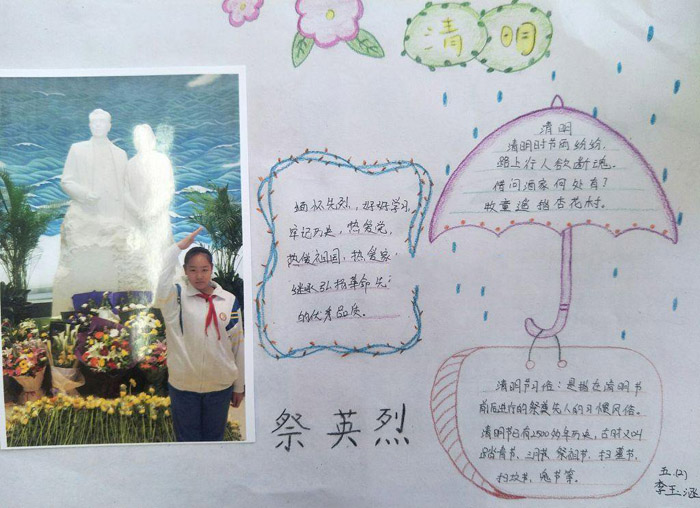 清明
清明
清明时节雨纷纷,
路上行人欲断魂,
借问酒家何处有?
牧童遥指杏花村。
缅怀先烈,好好学习,
牢记历史,热爱党,
热爱祖国,热爱家
继承弘扬革命先
的优秀品质。
祭英烈
清明节习俗:是指在清明节
前后进行的祭奠先人的习惯风俗。
清明节已有2500的年历史,古时又叫
踏青节、三月节、祭祖节、扫墓节、
扫坟节、鬼节等。
五.(2)
李玉涵